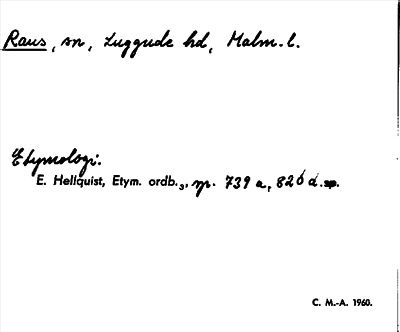 Raus, sn, Luggude hd, Malm. l.
Etymologi.
E. Hellquist, Etym. ordb.₃, sp. 739 a, 826 d.
C. M.-A. 1960.